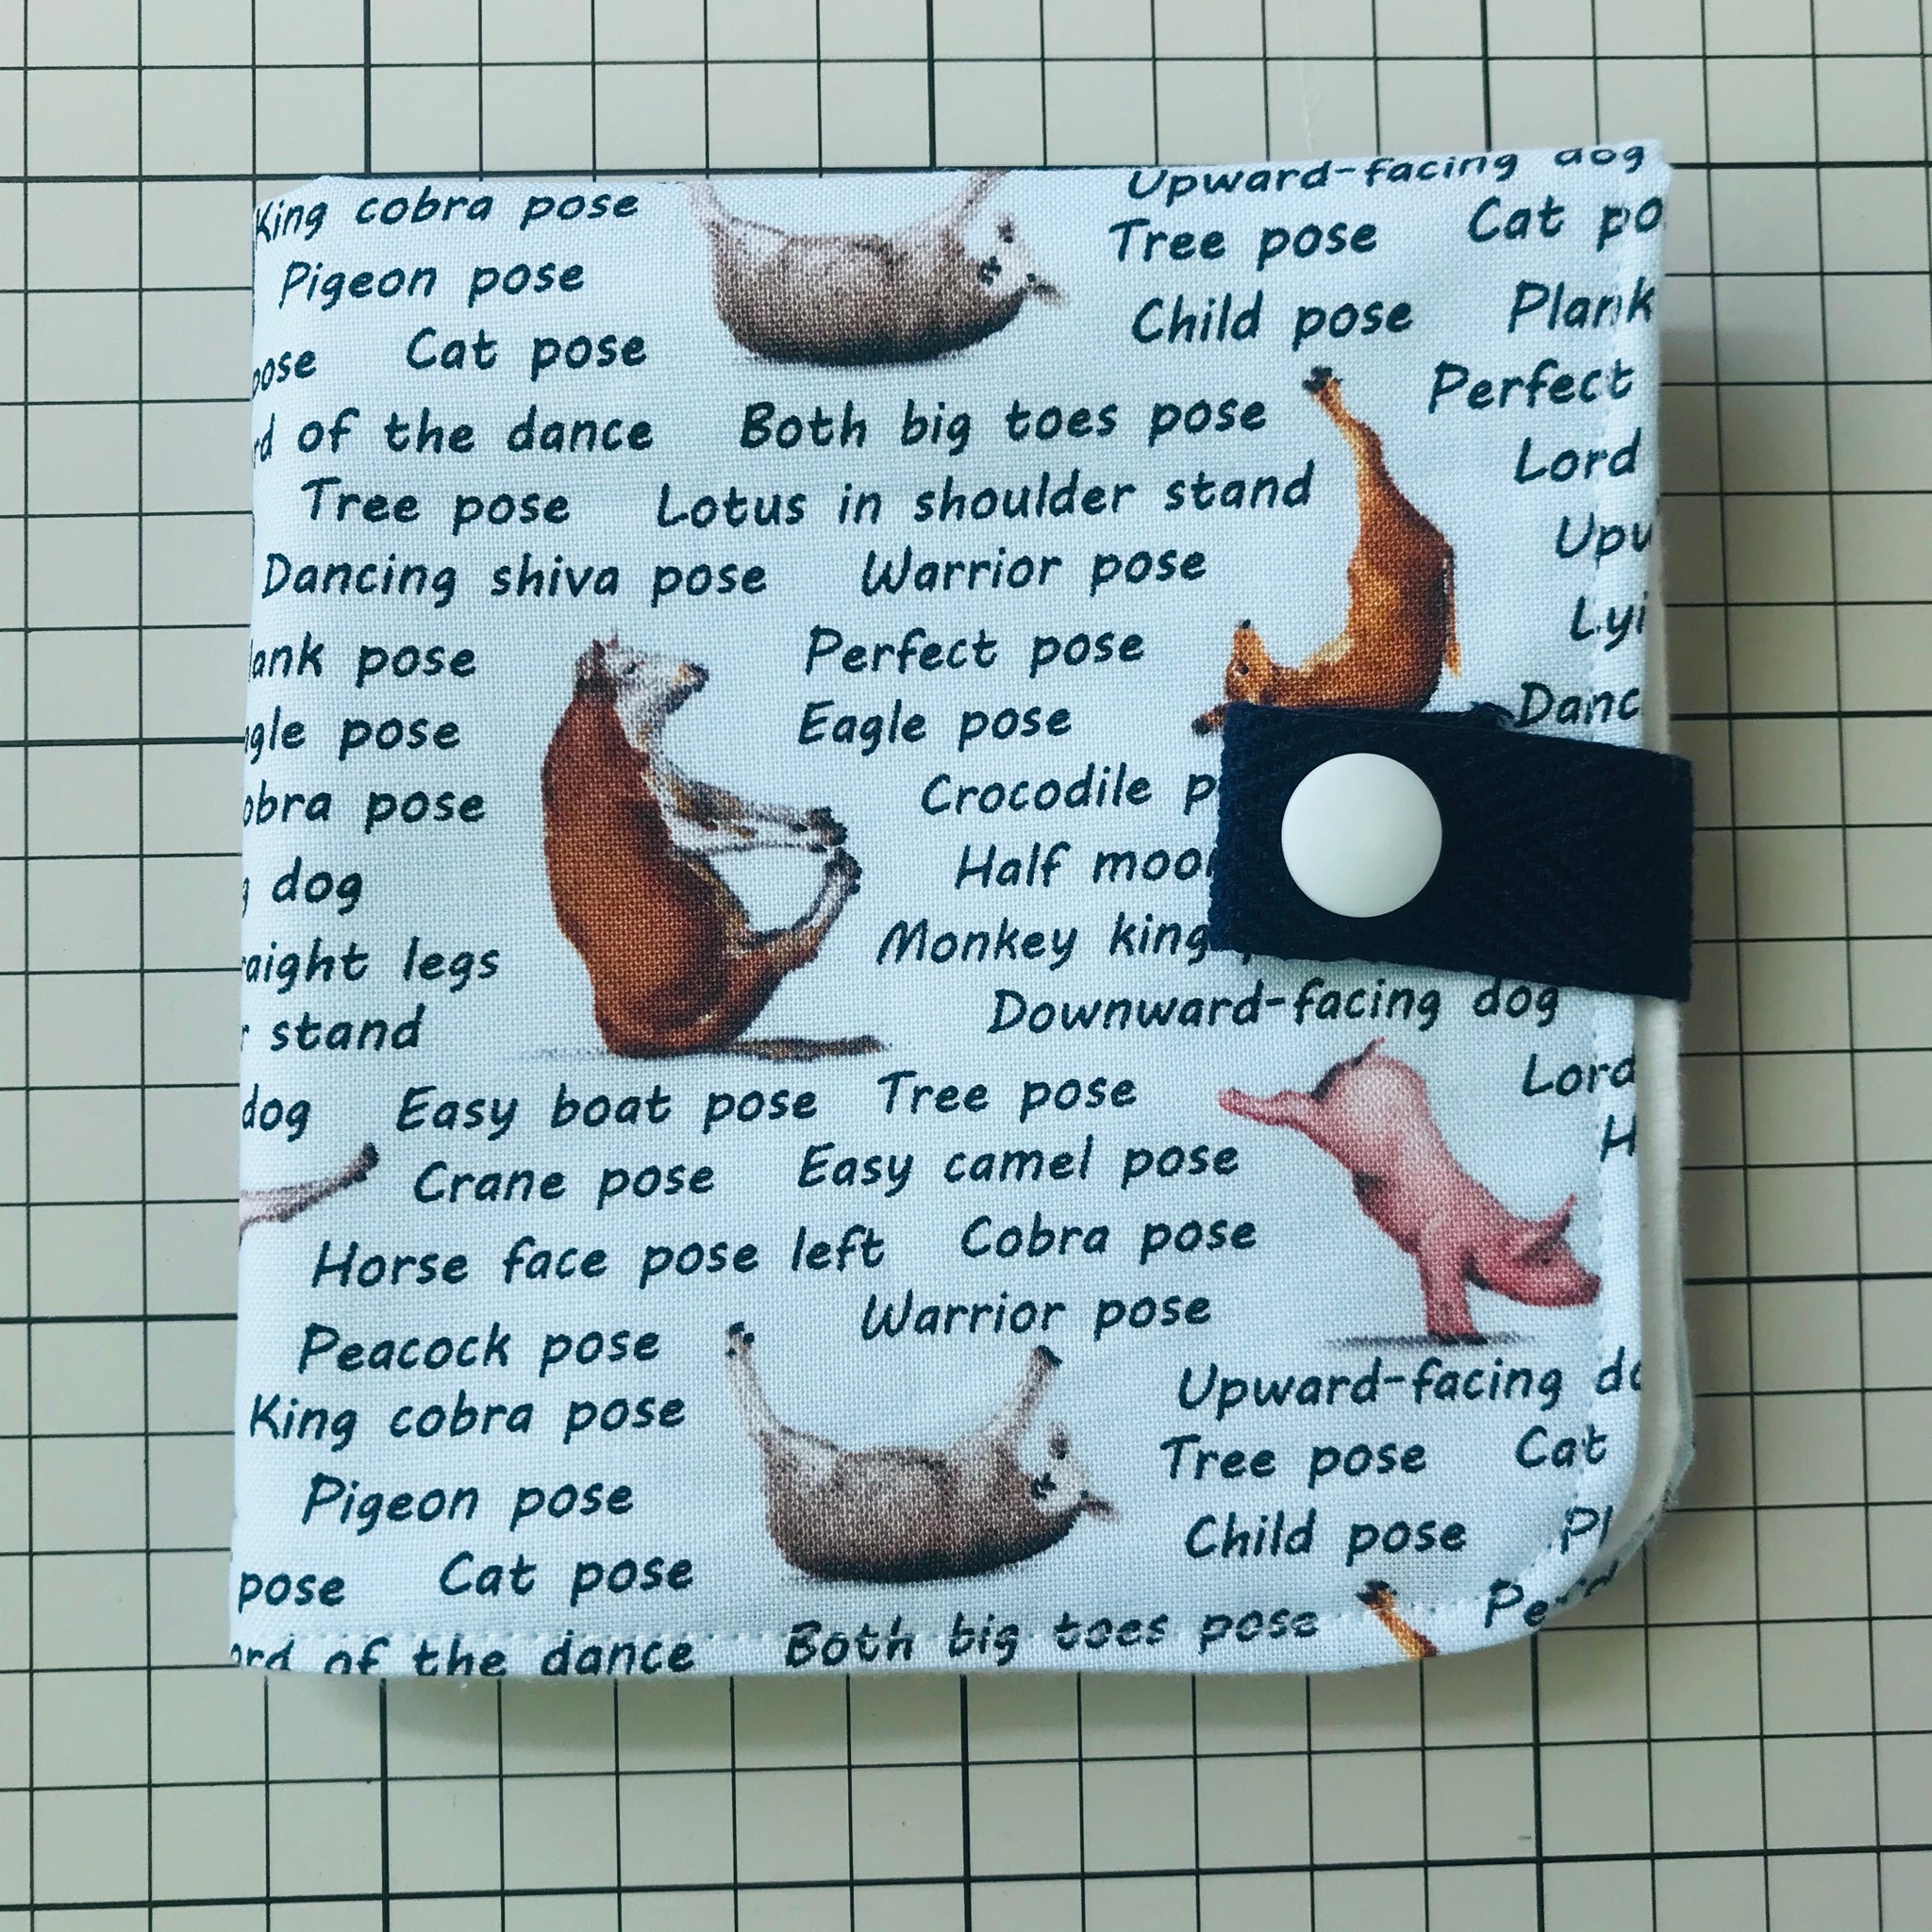 Upward-facing dog
King cobra pose
Tree pose Cat po
Pigeon pose
Child pose Plank
pose Cat pose
Perfect
rd of the dance Both big toes pose
Lord
Tree pose Lotus in shoulder stand
Upw
Dancing shiva pose Warrior pose
Lyi
ank pose Perfect pose
Danc
gle pose Eagle pose
obra pose Crocodile p
g dog Half moo
raight legs Monkey king
r stand Downward-facing dog
Lord
dog Easy boat pose Tree pose
H
Crane pose Easy camel pose
Horse face pose left Cobra pose
Peacock pose Warrior pose
King cobra pose Upward-facing do
Pigeon pose Tree pose Cat
pose Cat pose Child pose Pl
Pe
ord of the dance Both big toes pose